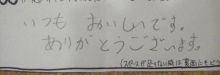 いつも おいしいです。
ありがとうございます。
(スペースが足りない時は裏面にもど